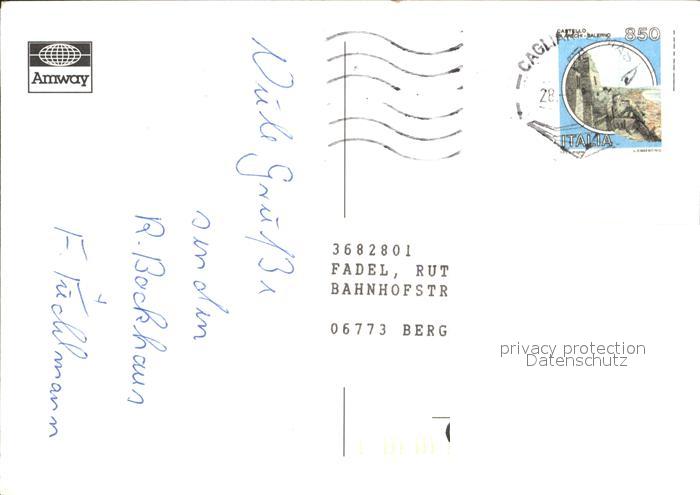 Amway
Viele Grüße
senden
R. Backhaus
+ F. Füchlmann
CASTELLO
DI ARECHI - SALERNO
850
ITALIA
CAGLIARI
28.
3682801
FADEL, RUT
BAHNHOFSTR
06773 BERG
privacy protection
Datenschutz